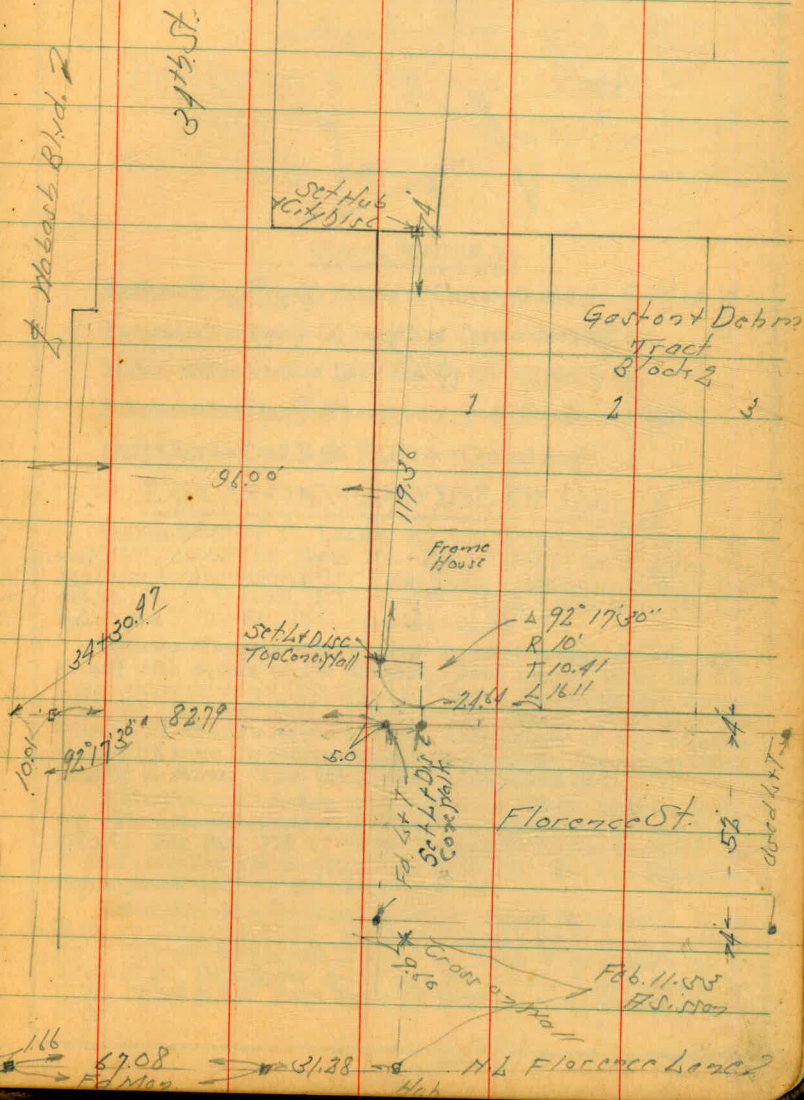 34th. St.
Wabash Blvd.
Set Hub
City Disc
4
Gaston & Dehm
Tract
Block 2
1
2
3
96.00'
119.36
Frame
House
34+30.47
Set. L+Disc
Top Conc. Wall
Δ 92° 17' 30"
R 10'
T 10.41
L 16.11
24.64
82.79
10.01
92° 17' 30"
5.0
4'
Fd. L+T
Set L+Disc
Conc. Walk
Florence St.
52
Used L+T
4'
Cross on Wall
Feb. 11-53
A. Sisson
1.66
67.08
Fd Mon
31.28
Hub
N L Florence Lane